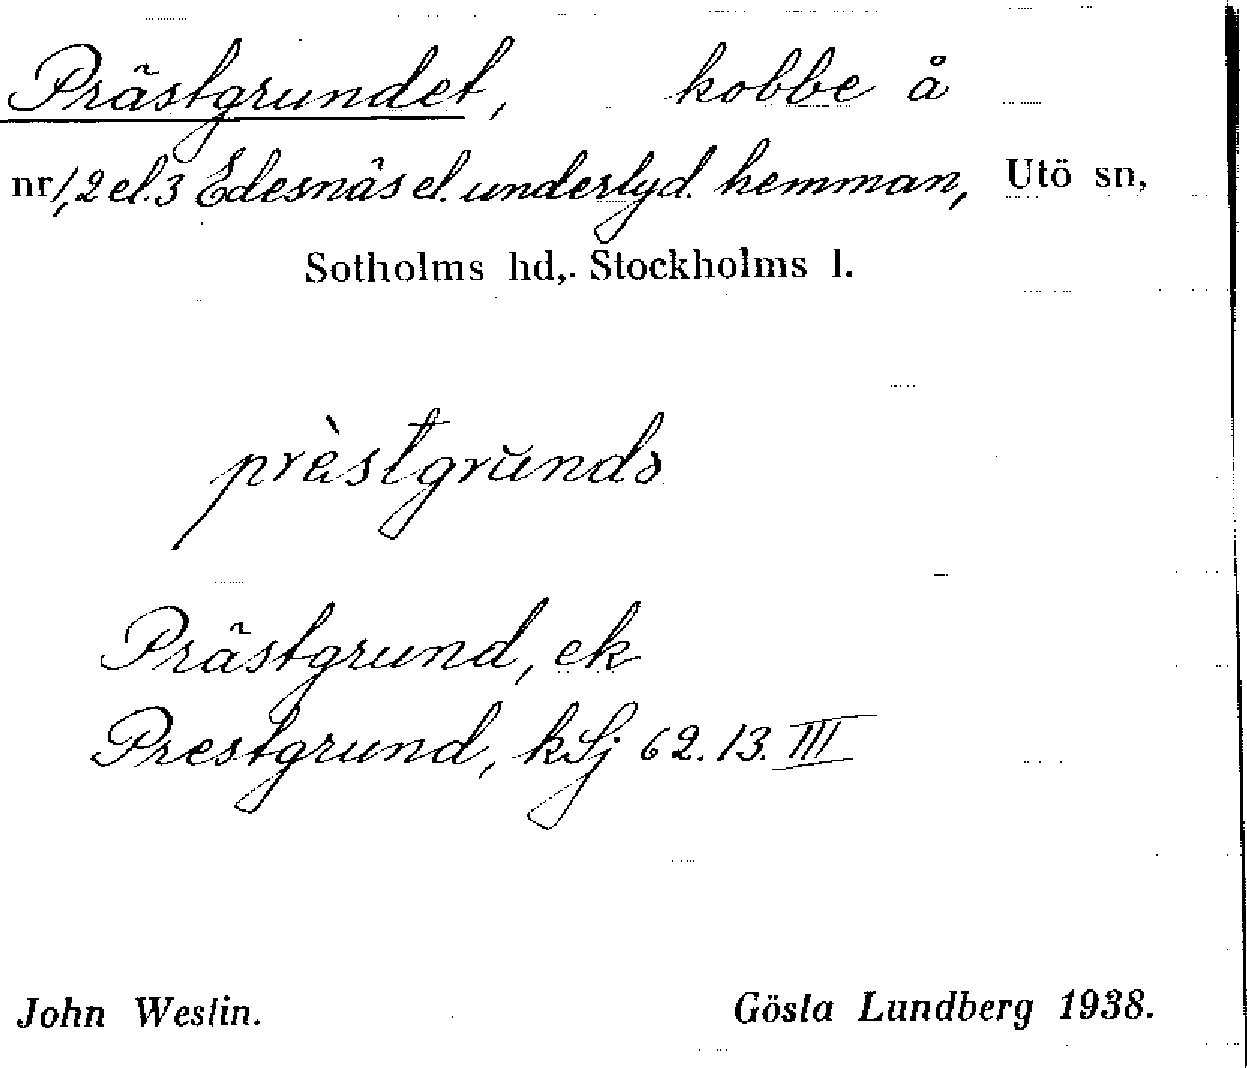 Prästgrundet, kobbe å
nr 1, 2 el. 3 Edesnäs el. underlyd. hemman, Utö sn,
Sotholms hd, Stockholms l.
prèstgrŭndə
Prästgrund, ek
Prestgrund, kSj 62. 13. III
John Westin. Gösta Lundberg 1938.